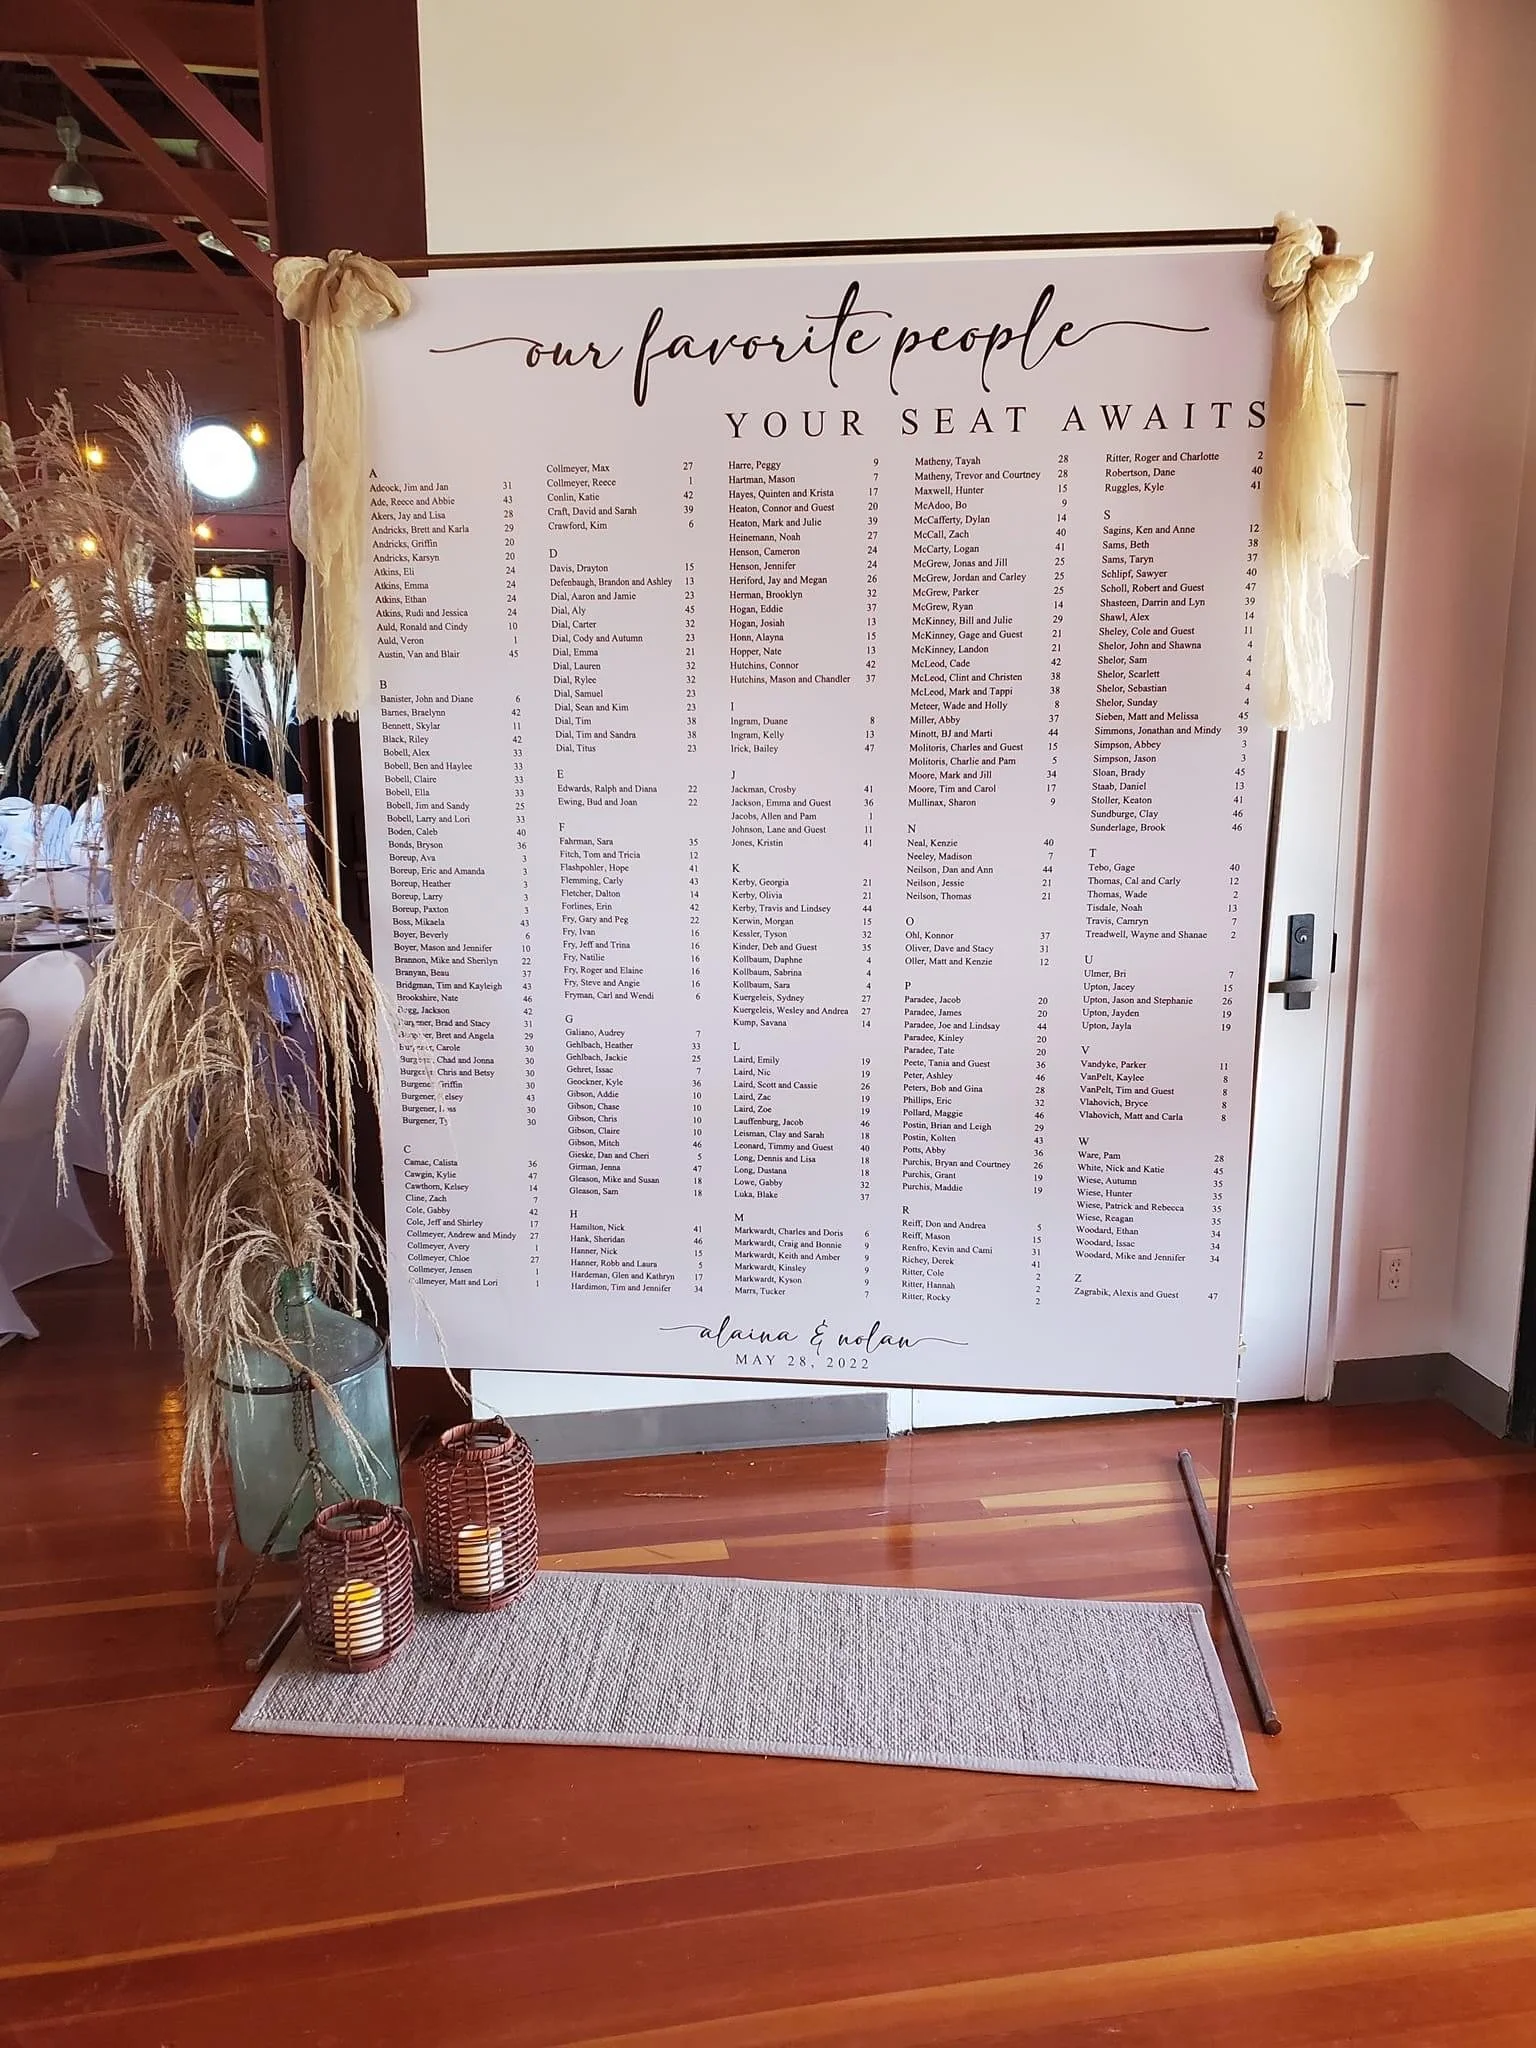 our favorite people
YOUR SEAT AWAITS
A
Adcock, Jim and Jan 31
Ade, Reece and Abbie 43
Akers, Jay and Lisa 28
Andricks, Brett and Karla 29
Andricks, Griffin 20
Andricks, Karsyn 20
Atkins, Eli 24
Atkins, Emma 24
Atkins, Ethan 24
Atkins, Rudi and Jessica 24
Auld, Ronald and Cindy 10
Auld, Veron 1
Austin, Van and Blair 45
B
Banister, John and Diane 6
Barnes, Braelynn 42
Bennett, Skylar 11
Black, Riley 42
Bobell, Alex 33
Bobell, Ben and Haylee 33
Bobell, Claire 33
Bobell, Ella 33
Bobell, Jim and Sandy 25
Bobell, Larry and Lori 33
Boden, Caleb 40
Bonds, Bryson 36
Boreup, Ava 3
Boreup, Eric and Amanda 3
Boreup, Heather 3
Boreup, Larry 3
Boreup, Paxton 3
Boss, Mikaela 43
Boyer, Beverly 6
Boyer, Mason and Jennifer 10
Brannon, Mike and Sherilyn 22
Branyan, Beau 37
Bridgman, Tim and Kayleigh 43
Brookshire, Nate 46
Jackson 42
Burgener, Brad and Stacy 31
Burgener, Bret and Angela 29
Burgener, Carole 30
Burgener, Chad and Jonna 30
Burgener, Chris and Betsy 30
Burgener, Griffin 30
Burgener, Kelsey 43
Burgener, 30
Burgener, 30
C
Camac, Calista 36
Cawgin, Kylie 47
Cawthorn, Kelsey 14
Cline, Zach 7
Cole, Gabby 42
Cole, Jeff and Shirley 17
Collmeyer, Andrew and Mindy 27
Collmeyer, Avery 1
Collmeyer, Chloe 27
Collmeyer, Jensen 1
Collmeyer, Matt and Lori 1
Collmeyer, Max 27
Collmeyer, Reece 1
Conlin, Katie 42
Craft, David and Sarah 39
Crawford, Kim 6
D
Davis, Drayton 15
Defenbaugh, Brandon and Ashley 13
Dial, Aaron and Jamie 23
Dial, Aly 45
Dial, Carter 32
Dial, Cody and Autumn 23
Dial, Emma 21
Dial, Lauren 32
Dial, Rylee 32
Dial, Samuel 23
Dial, Sean and Kim 23
Dial, Tim 38
Dial, Tim and Sandra 38
Dial, Titus 23
E
Edwards, Ralph and Diana 22
Ewing, Bud and Joan 22
F
Fahrman, Sara 35
Fitch, Tom and Tricia 12
Flashpohler, Hope 41
Flemming, Carly 43
Fletcher, Dalton 14
Forlines, Erin 42
Fry, Gary and Peg 22
Fry, Ivan 16
Fry, Jeff and Trina 16
Fry, Natilie 16
Fry, Roger and Elaine 16
Fry, Steve and Angie 16
Fryman, Carl and Wendi 6
G
Galiano, Audrey 7
Gehlbach, Heather 33
Gehlbach, Jackie 25
Gehret, Issac 7
Geockner, Kyle 36
Gibson, Addie 10
Gibson, Chase 10
Gibson, Chris 10
Gibson, Claire 10
Gibson, Mitch 46
Gieske, Dan and Cheri 5
Girman, Jenna 47
Gleason, Mike and Susan 18
Gleason, Sam 18
H
Hamilton, Nick 41
Hank, Sheridan 46
Hanner, Nick 15
Hanner, Robb and Laura 5
Hardeman, Glen and Kathryn 17
Hardimon, Tim and Jennifer 34
Harre, Peggy 9
Hartman, Mason 7
Hayes, Quinten and Krista 17
Heaton, Connor and Guest 20
Heaton, Mark and Julie 39
Heinemann, Noah 27
Henson, Cameron 24
Henson, Jennifer 24
Heriford, Jay and Megan 26
Herman, Brooklyn 32
Hogan, Eddie 37
Hogan, Josiah 13
Honn, Alayna 15
Hopper, Nate 13
Hutchins, Connor 42
Hutchins, Mason and Chandler 37
I
Ingram, Duane 8
Ingram, Kelly 13
Irick, Bailey 47
J
Jackman, Crosby 41
Jackson, Emma and Guest 36
Jacobs, Allen and Pam 1
Johnson, Lane and Guest 11
Jones, Kristin 41
K
Kerby, Georgia 21
Kerby, Olivia 21
Kerby, Travis and Lindsey 44
Kerwin, Morgan 15
Kessler, Tyson 32
Kinder, Deb and Guest 35
Kollbaum, Daphne 4
Kollbaum, Sabrina 4
Kollbaum, Sara 4
Kuergeleis, Sydney 27
Kuergeleis, Wesley and Andrea 27
Kump, Savana 14
L
Laird, Emily 19
Laird, Nic 19
Laird, Scott and Cassie 26
Laird, Zac 19
Laird, Zoe 19
Lauffenburg, Jacob 46
Leisman, Clay and Sarah 18
Leonard, Timmy and Guest 40
Long, Dennis and Lisa 18
Long, Dustana 18
Lowe, Gabby 32
Luka, Blake 37
M
Markwardt, Charles and Doris 6
Markwardt, Craig and Bonnie 9
Markwardt, Keith and Amber 9
Markwardt, Kinsley 9
Markwardt, Kyson 9
Marrs, Tucker 7
Matheny, Tayah 28
Matheny, Trevor and Courtney 28
Maxwell, Hunter 15
McAdoo, Bo 9
McCafferty, Dylan 14
McCall, Zach 40
McCarty, Logan 41
McGrew, Jonas and Jill 25
McGrew, Jordan and Carley 25
McGrew, Parker 25
McGrew, Ryan 14
McKinney, Bill and Julie 29
McKinney, Gage and Guest 21
McKinney, Landon 21
McLeod, Cade 42
McLeod, Clint and Christen 38
McLeod, Mark and Tappi 38
Meteer, Wade and Holly 8
Miller, Abby 37
Minott, BJ and Marti 44
Molitoris, Charles and Guest 15
Molitoris, Charlie and Pam 5
Moore, Mark and Jill 34
Moore, Tim and Carol 17
Mullinax, Sharon 9
N
Neal, Kenzie 40
Neeley, Madison 7
Neilson, Dan and Ann 44
Neilson, Jessie 21
Neilson, Thomas 21
O
Ohl, Konnor 37
Oliver, Dave and Stacy 31
Oller, Matt and Kenzie 12
P
Paradee, Jacob 20
Paradee, James 20
Paradee, Joe and Lindsay 44
Paradee, Kinley 20
Paradee, Tate 20
Peete, Tania and Guest 36
Peter, Ashley 46
Peters, Bob and Gina 28
Phillips, Eric 32
Pollard, Maggie 46
Postin, Brian and Leigh 29
Postin, Kolten 43
Potts, Abby 36
Purchis, Bryan and Courtney 26
Purchis, Grant 19
Purchis, Maddie 19
R
Reiff, Don and Andrea 5
Reiff, Mason 15
Renfro, Kevin and Cami 31
Richey, Derek 41
Ritter, Cole 2
Ritter, Hannah 2
Ritter, Rocky 2
Ritter, Roger and Charlotte 2
Robertson, Dane 40
Ruggles, Kyle 41
S
Sagins, Ken and Anne 12
Sams, Beth 38
Sams, Taryn 37
Schlipf, Sawyer 40
Scholl, Robert and Guest 47
Shasteen, Darrin and Lyn 39
Shawl, Alex 14
Sheley, Cole and Guest 11
Shelor, John and Shawna 4
Shelor, Sam 4
Shelor, Scarlett 4
Shelor, Sebastian 4
Shelor, Sunday 4
Sieben, Matt and Melissa 45
Simmons, Jonathan and Mindy 39
Simpson, Abbey 3
Simpson, Jason 3
Sloan, Brady 45
Staab, Daniel 13
Stoller, Keaton 41
Sundburge, Clay 46
Sunderlage, Brook 46
T
Tebo, Gage 40
Thomas, Cal and Carly 12
Thomas, Wade 2
Tisdale, Noah 13
Travis, Camryn 7
Treadwell, Wayne and Shanae 2
U
Ulmer, Bri 7
Upton, Jacey 15
Upton, Jason and Stephanie 26
Upton, Jayden 19
Upton, Jayla 19
V
Vandyke, Parker 11
VanPelt, Kaylee 8
VanPelt, Tim and Guest 8
Vlahovich, Bryce 8
Vlahovich, Matt and Carla 8
W
Ware, Pam 28
White, Nick and Katie 45
Wiese, Autumn 35
Wiese, Hunter 35
Wiese, Patrick and Rebecca 35
Wiese, Reagan 35
Woodard, Ethan 34
Woodard, Issac 34
Woodard, Mike and Jennifer 34
Z
Zagrabik, Alexis and Guest 47
alaina & nolan
MAY 28, 2022